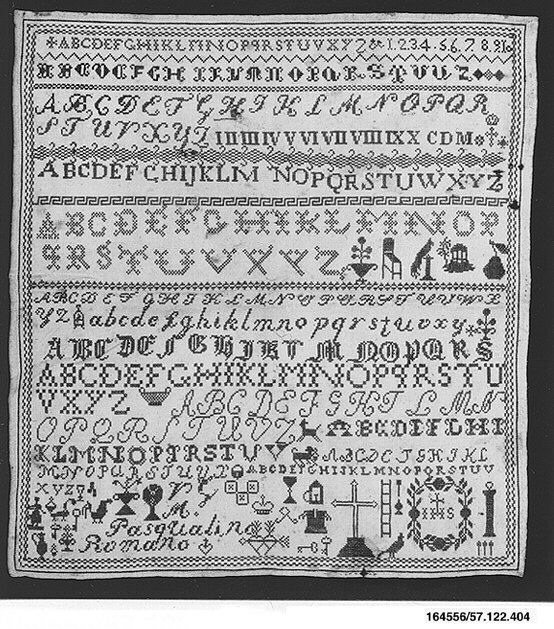 ABCDEFGHIKLMNOPQRSTUVXYZ&1.2.3.4.5.6.7.8.9.
ABCDEFGHIKLMNOPQRSTVUZ
ABCDEFGHIKLMNOPQR
STUVXYZ IIIIIIIVVVIVIIVIIIIXX CDM
ABCDEFGHIJKLM NOPQRSTUWXYZ
ABCDEFGHIKLMNOP
QRSTUVXYZ
ABCDEFGHIKLMNOPQRSTUVWX
YZ abcdefghiklmnopqrstuvxy
ABCDEFGHIKLMNOPQRS
ABCDEFGHIKLMNOPQRSTU
VXYZ ABCDEFGHILMN
OPQRSTUVZ ABCDEFLHI
KLMNOPQRSTU ABCDEFGHIKL
MNOPQRSTUVZ ABCDEFGHIJKLMNOPQRSTUV
XYZ
Pasqualina
Romano
164556/57.122.404